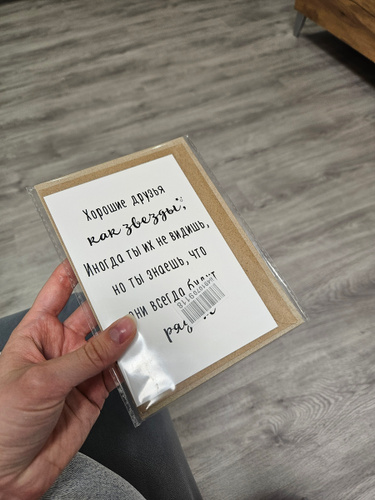 Хорошие друзья
как звезды,
Иногда ты их не видишь,
но ты знаешь, что
они всегда будут